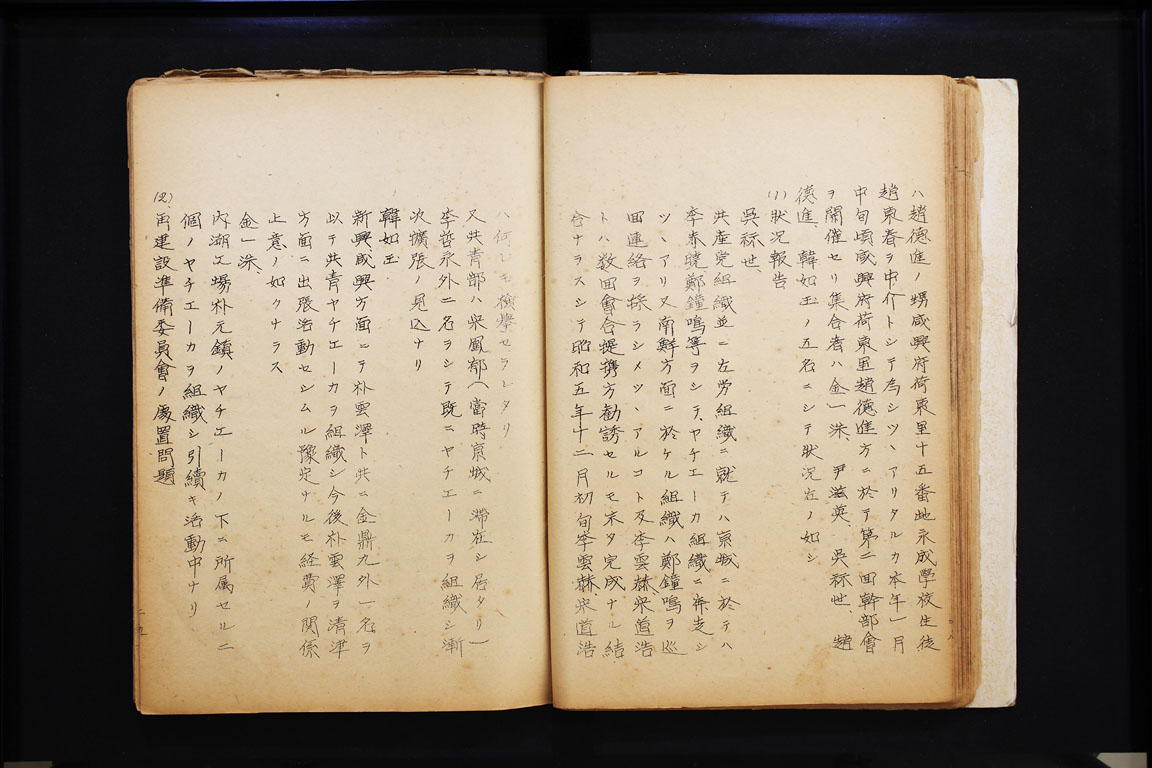 ハ趙德進ノ甥咸興府荷東里十五番地永成學校生徒
趙東春ヲ中介トシテ為シツヽアリタルカ本年一月
中旬頃咸興府荷東里趙德進方ニ於テ第二回幹部會
ヲ開催セリ集合者ハ金一洙、尹滋英、吳秝世、趙
德進、韓如玉ノ五名ニシテ狀況左ノ如シ
(1)狀況報告
吳秝世、
共產党組織並ニ左労組織ニ就テハ京城ニ於テハ
李春 鄭鐘鳴等ヲシテ、ヤチエーカ組織ニ奔走シ
ツヽアリ又南鮮方面ニ於ケル組織ハ鄭鐘鳴ヲ巡
回連絡ヲ採ラシメツヽアルコト及李雲赫、宋道浩
トハ数回會合提携方勧誘セルモ未タ完成ナル結
合ナラスシテ昭和五年十二月初旬李雲赫宋道浩
ハ何レモ検擧セラレタリ
又共青部ハ宋鳳郁(當時京城ニ滞在シ居タリ)
李哲永外二名ヲシテ既ニヤチエーカヲ組織シ漸
次擴張ノ見込ナリ
韓如玉
新興咸興方面ニテ朴雲澤ト共ニ金鼎九外一名ヲ
以テ共青ヤチエーカヲ組織シ今後朴雲澤ヲ清津
方面ニ出張活動セシムル豫定ナルモ経費ノ関係
上意ノ如クナラス
金一洙、
內湖工場朴元鎮ノヤチエーカノ下ニ所属セル二
個ノヤチエーカヲ組織シ引續キ活動中ナリ
(2)、再建設準備委員會ノ處置問題